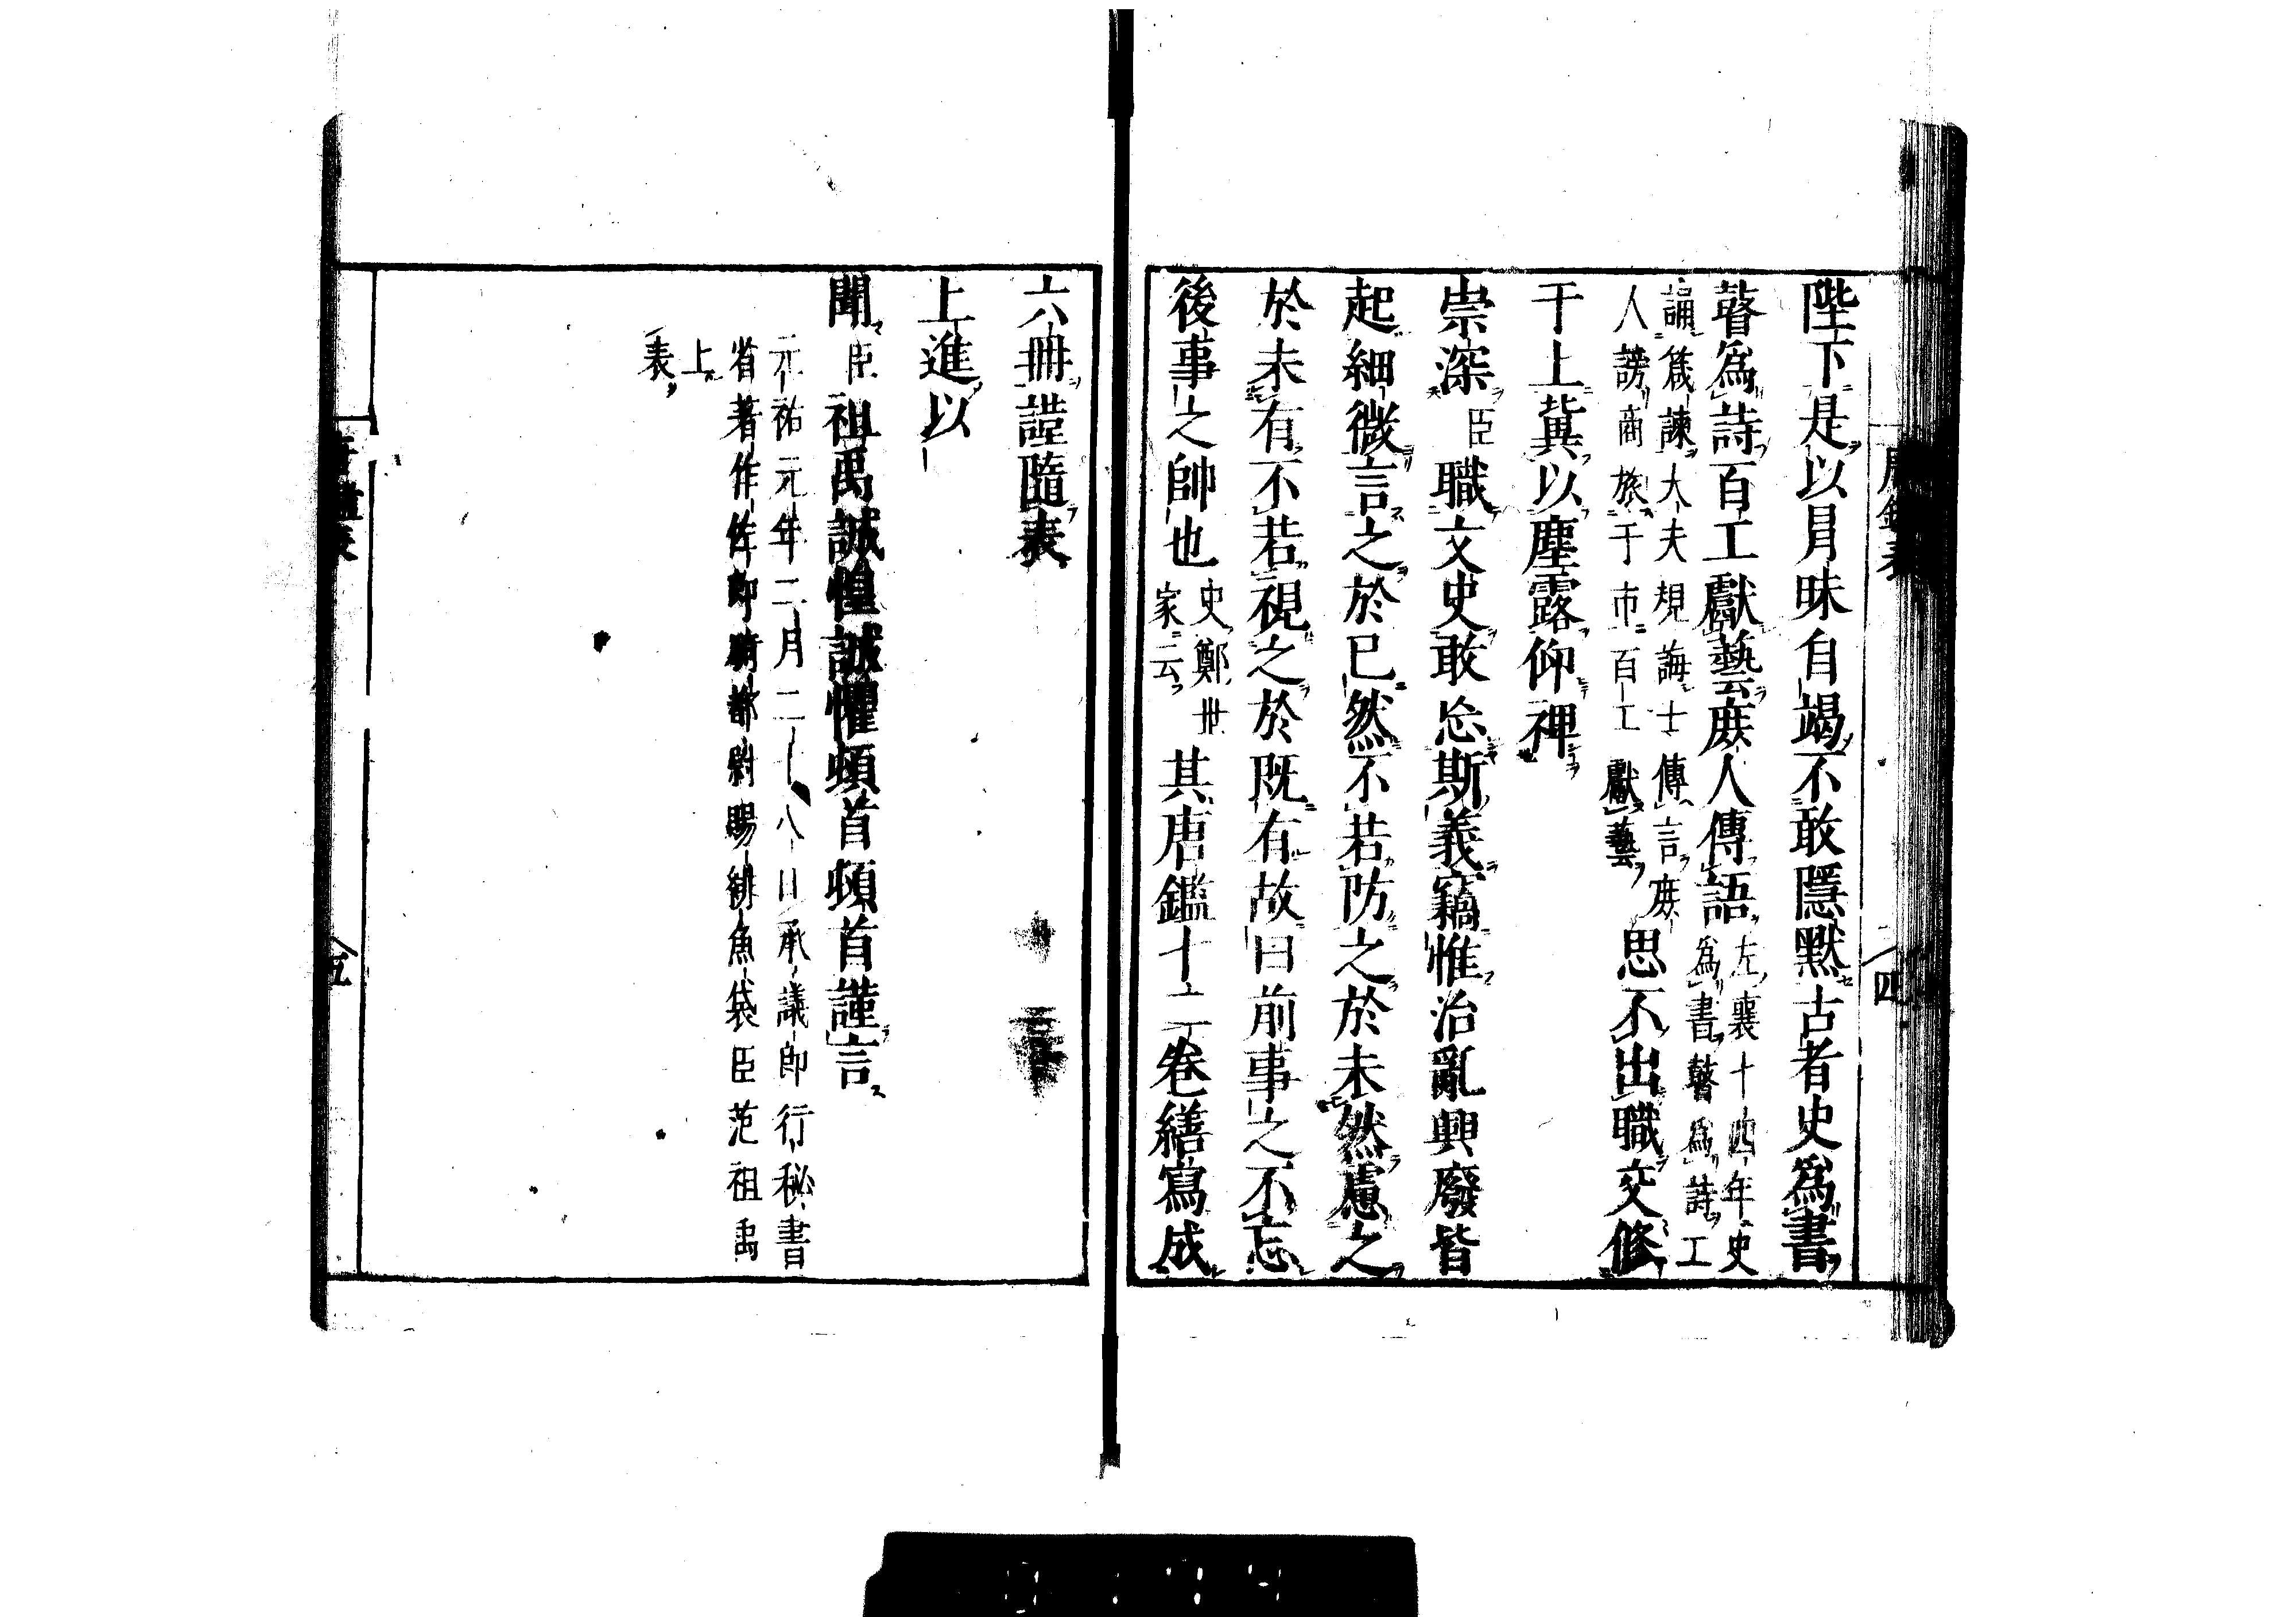 陛下是以冐昧自竭不敢隱默古者史爲書
瞽爲詩百工獻藝庶人傳語
左襄十四年史
爲書瞽爲詩工
誦箴諫大夫規誨士傳言庶
人謗商旅于市百工獻藝
思不出職交修
干上冀以塵露仰裨
崇深臣職文史敢忘斯義竊惟治亂興廢皆
起細微言之於已然不若防之於未然慮之
於未有不若視之於既有故曰前事之不忘
後事之帥也
史鄭世
家云
其唐鑑十二卷繕寫成
六冊謹隨表
上進以
聞臣祖禹誠惶誠懼頓首頓首謹言
元祐元年二月二十八日承議郎行秘書
省著作佐郎騎都尉賜緋魚袋臣范祖禹
上
表
四
五